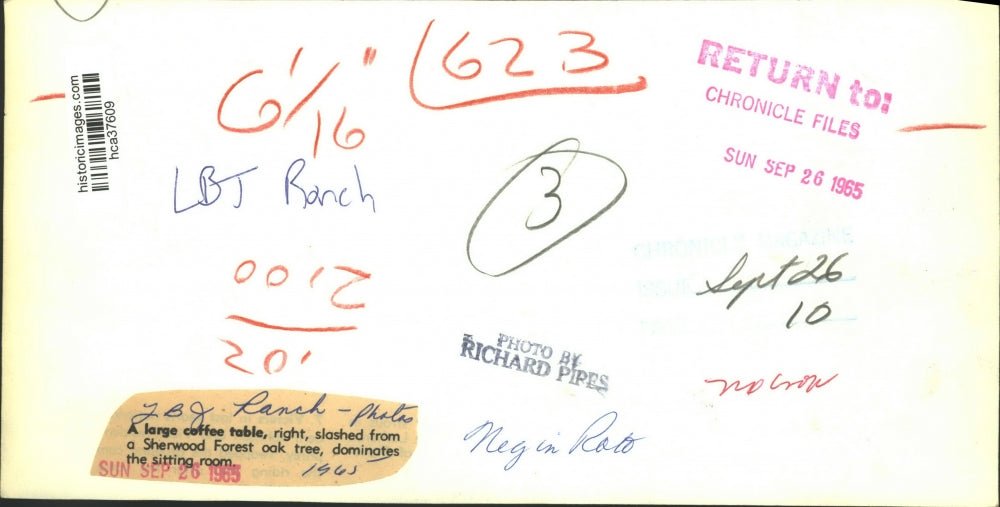 historicimages.com
hca37609
6 1/16"
623
RETURN to:
CHRONICLE FILES
SUN SEP 26 1965
LBJ Ranch
3
CHRONICLE MAGAZINE
ISSUE
Sept 26
10
PHOTO BY
RICHARD PIPES
Neg in Roto
LBJ. Ranch - photos
A large coffee table, right, slashed from
a Sherwood Forest oak tree, dominates
the sitting room.
1965
SUN SEP 26 1965